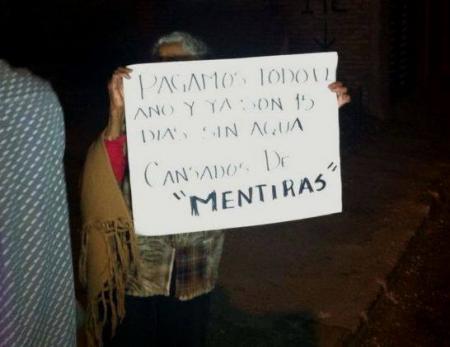 PAGAMOS TODO EL
AÑO Y YA SON 15
DIAS SIN AGUA
CANSADOS DE
"MENTIRAS"